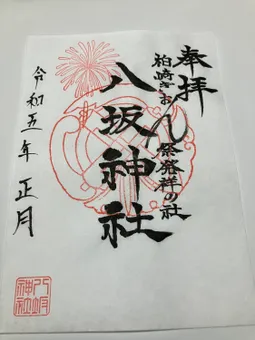 奉拝
柏崎ぎおん祭発祥の社
八坂神社
令和五年 正月
八坂神社